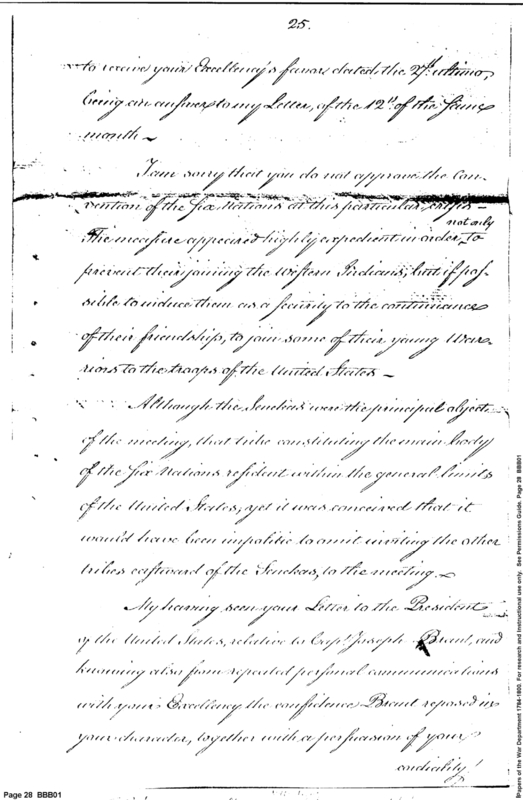 25.
to receive your Excellency's favor dated the 27th ultimo,
being an answer to my Letter, of the 12th of the same
month ~
I am sorry that you do not approve the Con-
vention of the Six Nations at this particular crisis -
not only
The measure appeared highly expedient in order, to
prevent their joining the Western Indians, but if pos-
sible to induce them as a security to the continuance
of their friendship, to join some of their young War-
riors to the troops of the United States ~
Although the Senekas were the principal object
of the meeting, that tribe constituting the main body
of the Six Nations resident within the general limits
of the United States, yet it was conceived that it
would have been impolitic to omit inviting the other
tribes eastward of the Senekas, to the meeting ~
My having seen your Letter to the President
of the United States, relative to Capt Joseph Brant, and
knowing also from repeated personal communications
with your Excellency the confidence Brant reposed in
your character, together with a persuasion of your
cordiality
Page 28 BBB01
Papers of the War Department 1784-1800. For research and instructional use only. See Permissions Guide. Page 28 BBB01